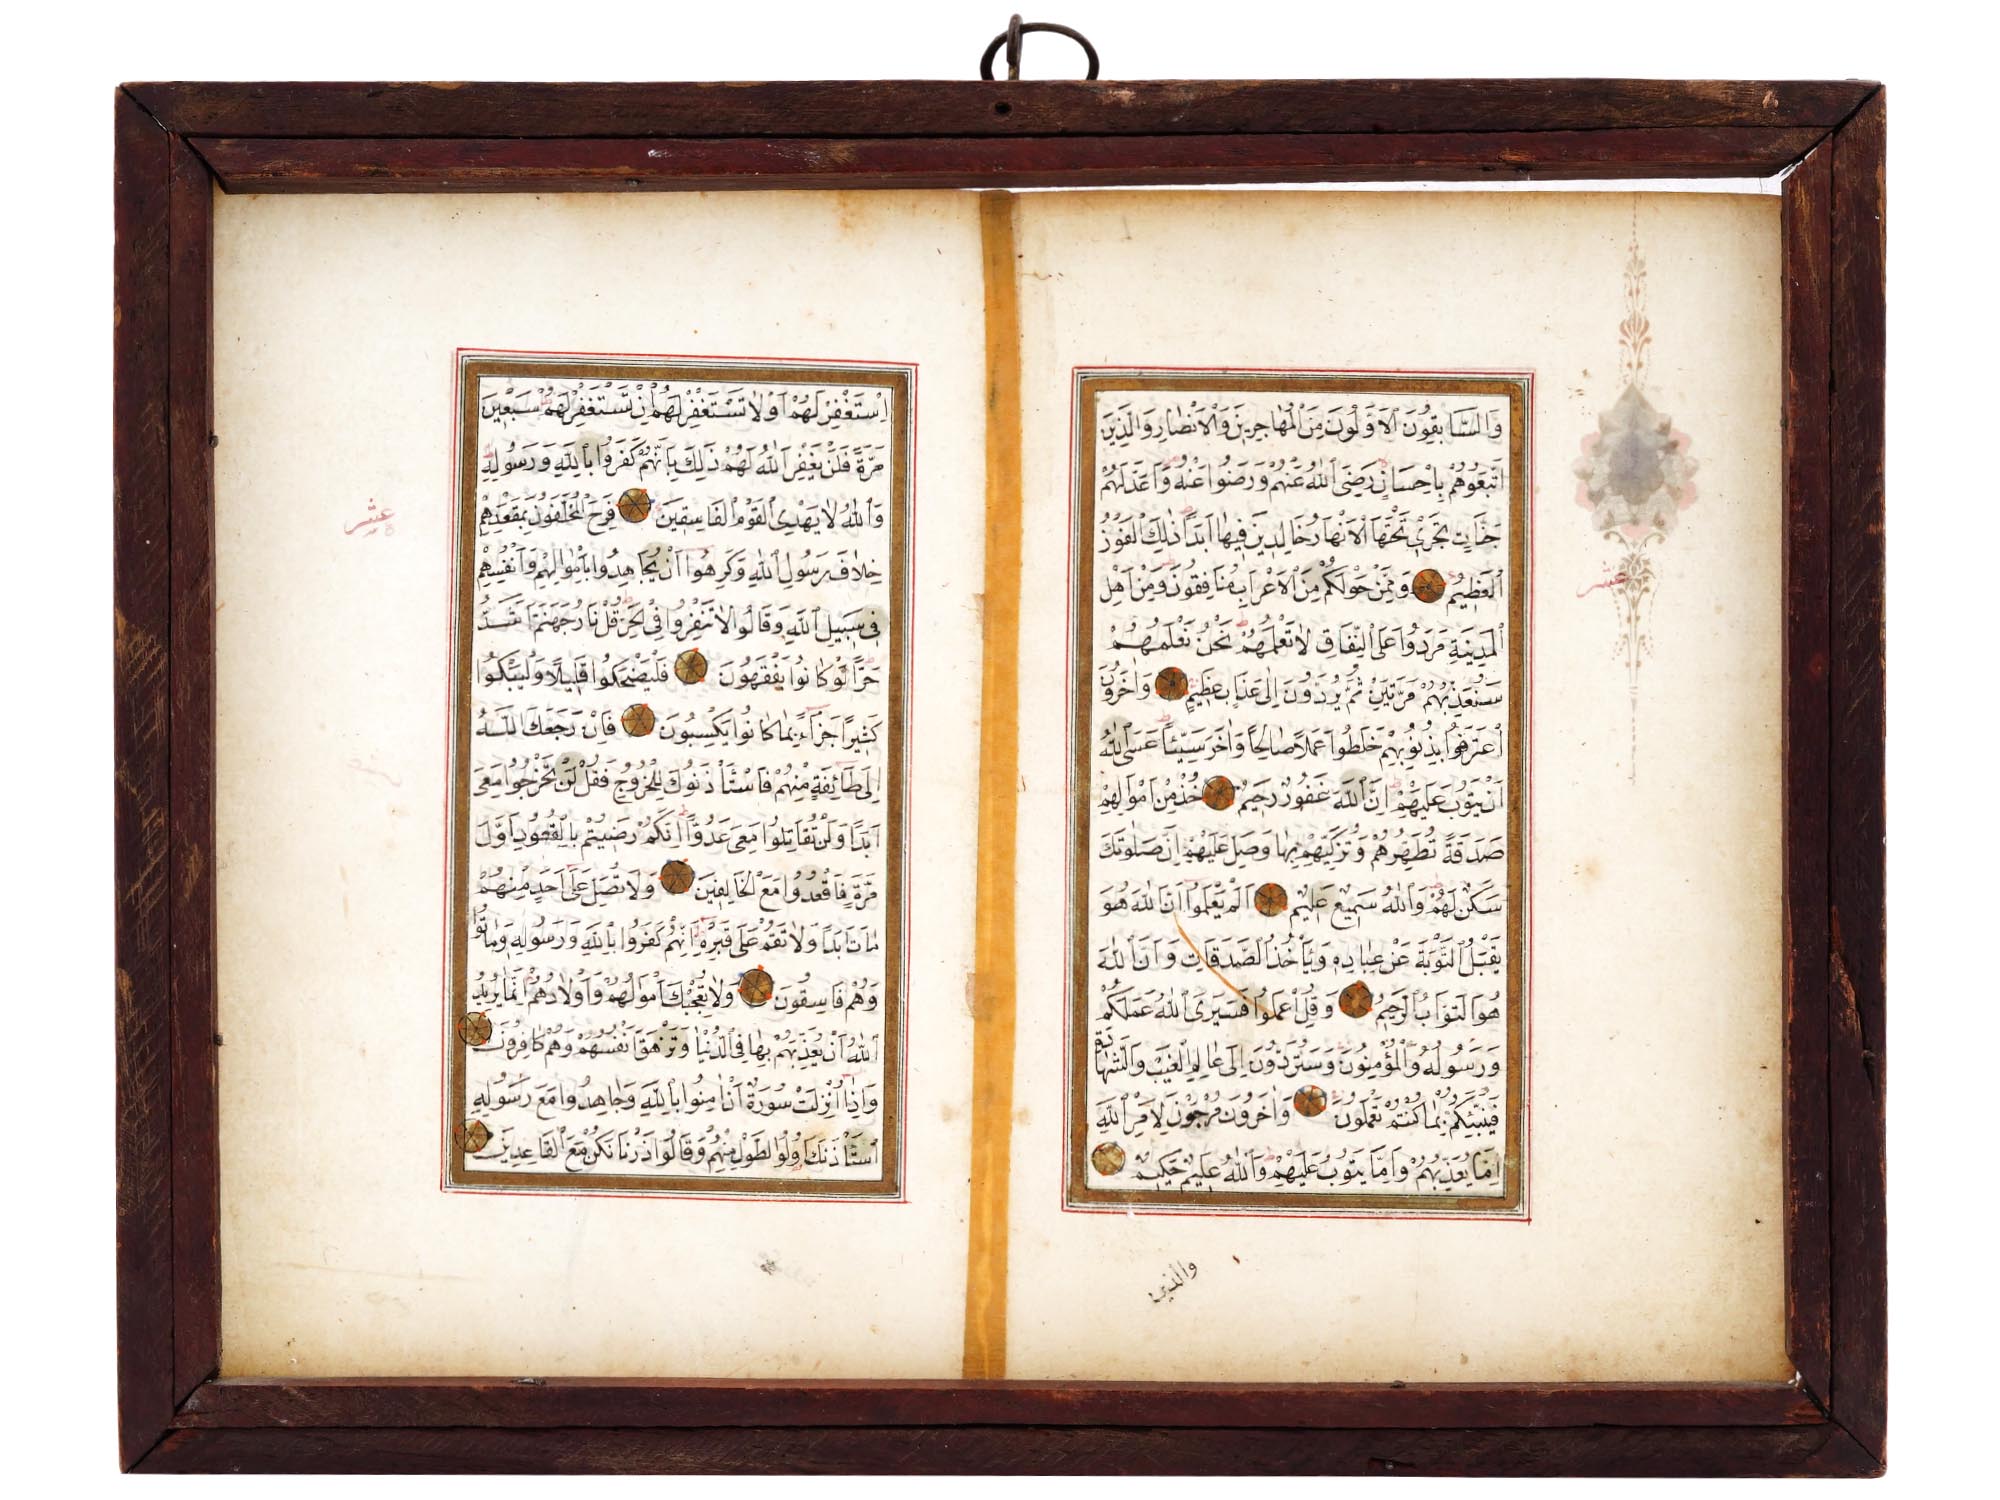 وَالسَّابِقُونَ الْاَوَّلُونَ مِنَ الْمُهَاجِرِينَ وَالْاَنْصَارِ وَالَّذِينَ
اتَّبَعُوهُمْ بِاِحْسَانٍ رَضِيَ اللّٰهُ عَنْهُمْ وَرَضُوا عَنْهُ وَاَعَدَّ لَهُمْ
جَنَّاتٍ تَجْرِي تَحْتَهَا الْاَنْهَارُ خَالِدِينَ فِيهَا اَبَدًا ذٰلِكَ الْفَوْزُ
الْعَظِيمُ وَمِمَّنْ حَوْلَكُمْ مِنَ الْاَعْرَابِ مُنَافِقُونَ وَمِنْ اَهْلِ
الْمَدِينَةِ مَرَدُوا عَلَى النِّفَاقِ لَا تَعْلَمُهُمْ نَحْنُ نَعْلَمُهُمْ
سَنُعَذِّبُهُمْ مَرَّتَيْنِ ثُمَّ يُرَدُّونَ اِلٰى عَذَابٍ عَظِيمٍ وَاٰخَرُونَ
اعْتَرَفُوا بِذُنُوبِهِمْ خَلَطُوا عَمَلًا صَالِحًا وَاٰخَرَ سَيِّئًا عَسَى اللّٰهُ
اَنْ يَتُوبَ عَلَيْهِمْ اِنَّ اللّٰهَ غَفُورٌ رَحِيمٌ خُذْ مِنْ اَمْوَالِهِمْ
صَدَقَةً تُطَهِّرُهُمْ وَتُزَكِّيهِمْ بِهَا وَصَلِّ عَلَيْهِمْ اِنَّ صَلٰوتَكَ
سَكَنٌ لَهُمْ وَاللّٰهُ سَمِيعٌ عَلِيمٌ اَلَمْ يَعْلَمُوا اَنَّ اللّٰهَ هُوَ
يَقْبَلُ التَّوْبَةَ عَنْ عِبَادِهِ وَيَأْخُذُ الصَّدَقَاتِ وَاَنَّ اللّٰهَ
هُوَ التَّوَّابُ الرَّحِيمُ وَقُلِ اعْمَلُوا فَسَيَرَى اللّٰهُ عَمَلَكُمْ
وَرَسُولُهُ وَالْمُؤْمِنُونَ وَسَتُرَدُّونَ اِلٰى عَالِمِ الْغَيْبِ وَالشَّهَادَةِ
فَيُنَبِّئُكُمْ بِمَا كُنْتُمْ تَعْمَلُونَ وَاٰخَرُونَ مُرْجَوْنَ لِاَمْرِ اللّٰهِ
اِمَّا يُعَذِّبُهُمْ وَاِمَّا يَتُوبُ عَلَيْهِمْ وَاللّٰهُ عَلِيمٌ حَكِيمٌ
والذين
عشر
اِسْتَغْفِرْ لَهُمْ اَوْ لَا تَسْتَغْفِرْ لَهُمْ اِنْ تَسْتَغْفِرْ لَهُمْ سَبْعِينَ
مَرَّةً فَلَنْ يَغْفِرَ اللّٰهُ لَهُمْ ذٰلِكَ بِاَنَّهُمْ كَفَرُوا بِاللّٰهِ وَرَسُولِهِ
وَاللّٰهُ لَا يَهْدِي الْقَوْمَ الْفَاسِقِينَ فَرِحَ الْمُخَلَّفُونَ بِمَقْعَدِهِمْ
خِلَافَ رَسُولِ اللّٰهِ وَكَرِهُوا اَنْ يُجَاهِدُوا بِاَمْوَالِهِمْ وَاَنْفُسِهِمْ
فِي سَبِيلِ اللّٰهِ وَقَالُوا لَا تَنْفِرُوا فِي الْحَرِّ قُلْ نَارُ جَهَنَّمَ اَشَدُّ
حَرًّا لَوْ كَانُوا يَفْقَهُونَ فَلْيَضْحَكُوا قَلِيلًا وَلْيَبْكُوا
كَثِيرًا جَزَاءً بِمَا كَانُوا يَكْسِبُونَ فَاِنْ رَجَعَكَ اللّٰهُ
اِلٰى طَائِفَةٍ مِنْهُمْ فَاسْتَأْذَنُوكَ لِلْخُرُوجِ فَقُلْ لَنْ تَخْرُجُوا مَعِيَ
اَبَدًا وَلَنْ تُقَاتِلُوا مَعِيَ عَدُوًّا اِنَّكُمْ رَضِيتُمْ بِالْقُعُودِ اَوَّلَ
مَرَّةٍ فَاقْعُدُوا مَعَ الْخَالِفِينَ وَلَا تُصَلِّ عَلٰى اَحَدٍ مِنْهُمْ
مَاتَ اَبَدًا وَلَا تَقُمْ عَلٰى قَبْرِهِ اِنَّهُمْ كَفَرُوا بِاللّٰهِ وَرَسُولِهِ وَمَاتُوا
وَهُمْ فَاسِقُونَ وَلَا تُعْجِبْكَ اَمْوَالُهُمْ وَاَوْلَادُهُمْ اِنَّمَا يُرِيدُ
اللّٰهُ اَنْ يُعَذِّبَهُمْ بِهَا فِي الدُّنْيَا وَتَزْهَقَ اَنْفُسُهُمْ وَهُمْ كَافِرُونَ
وَاِذَا اُنْزِلَتْ سُورَةٌ اَنْ اٰمِنُوا بِاللّٰهِ وَجَاهِدُوا مَعَ رَسُولِهِ
اسْتَأْذَنَكَ اُولُوا الطَّوْلِ مِنْهُمْ وَقَالُوا ذَرْنَا نَكُنْ مَعَ الْقَاعِدِينَ
عشر